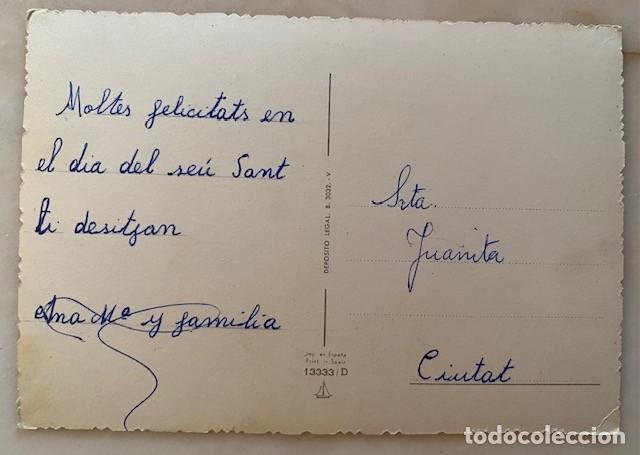 Moltes felicitats en
el dia del seú Sant
li desitjan
Ana Mª y familia
DEPOSITO LEGAL. B. 3032. - V
Imp. en España
Print. in Spain
13333/D
Srta.
Juanita
Ciutat
todocoleccion.net